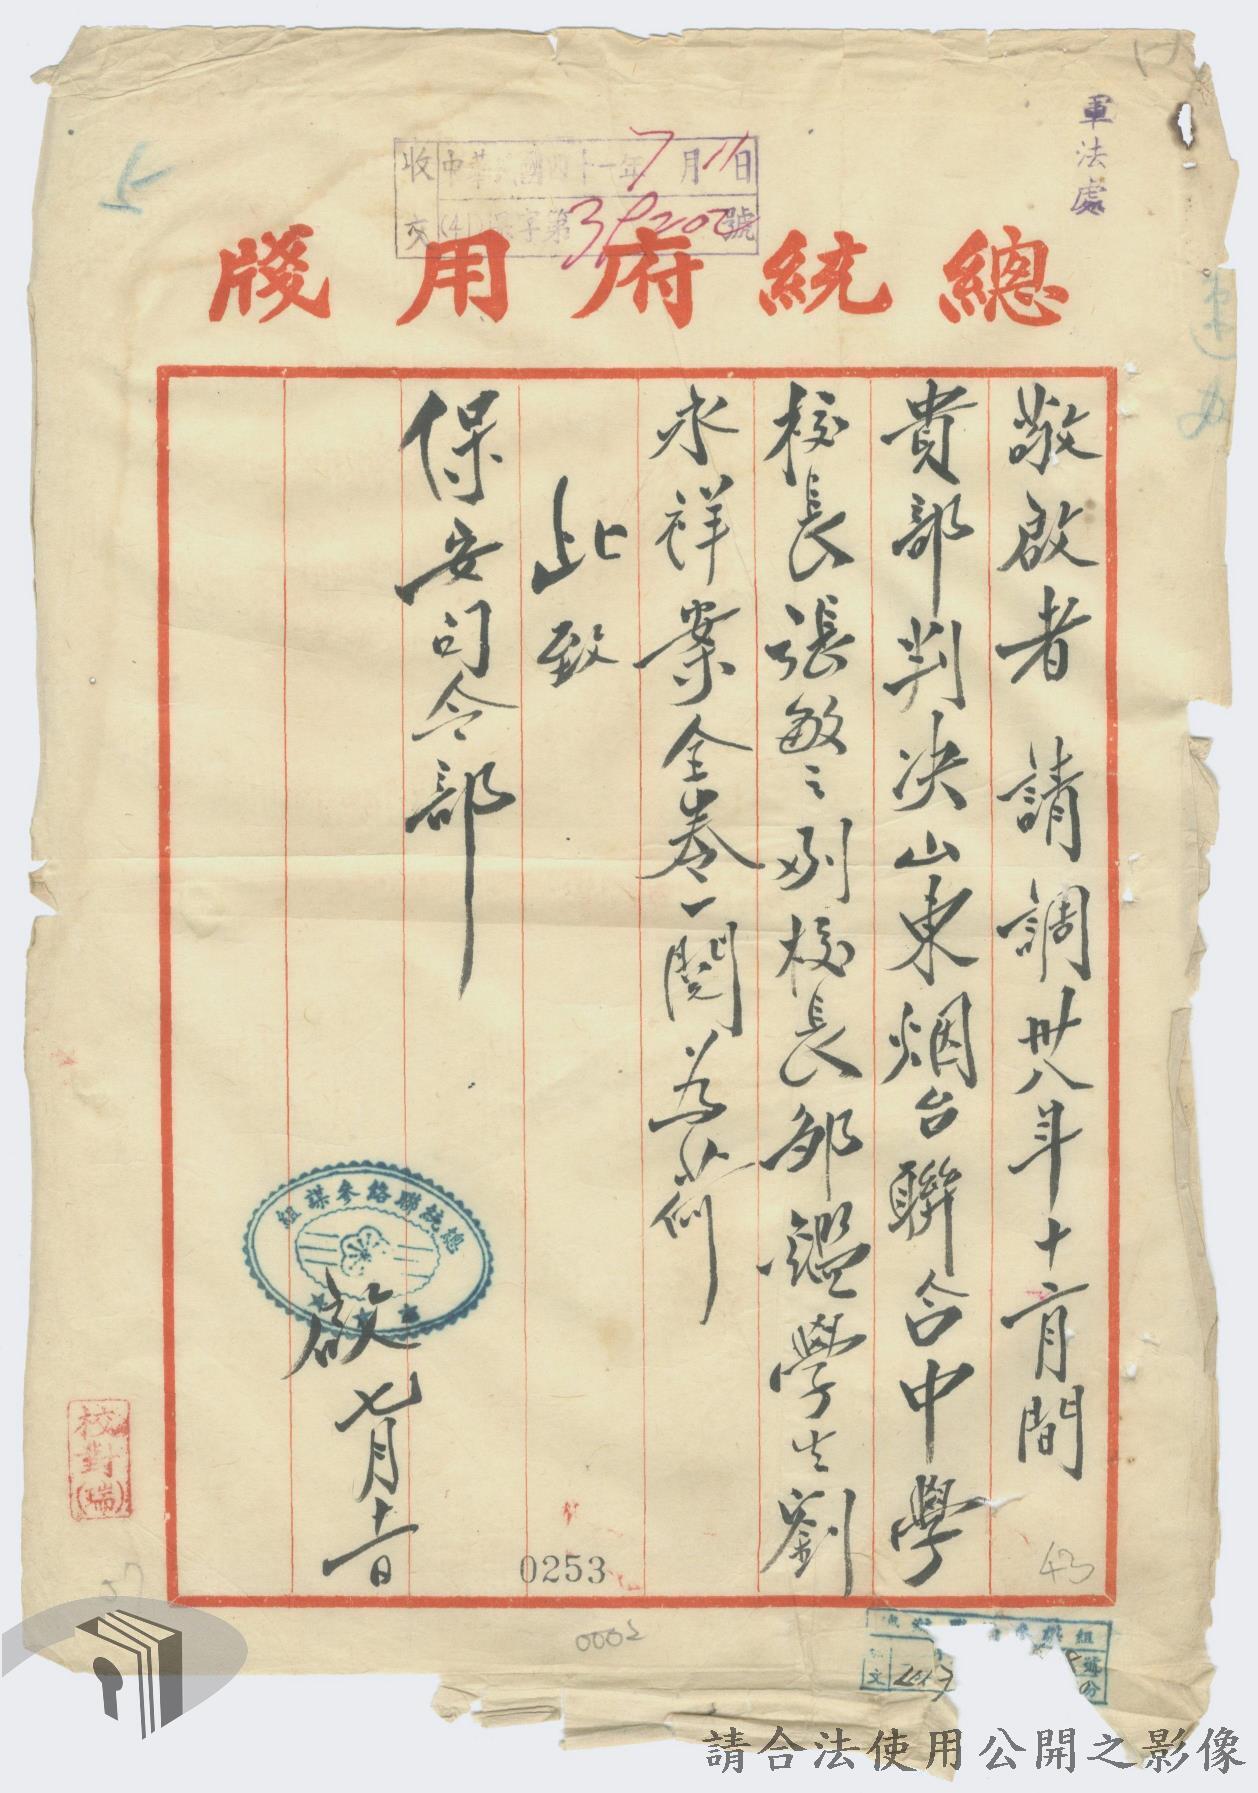 軍法處
收文
中華民國四十一年7月11日
(41)保字第 號
總統府用牋
敬啟者 請調卅八年十二月間
貴部判決山東烟台聯合中學
校長張敏之別校長鄒鑑學生劉
永祥案全卷一閱為荷
此致
保安司令部
總統聯絡參謀組
啟 七月十一日
校對(瑞)
0253
43
0002
請合法使用公開之影像